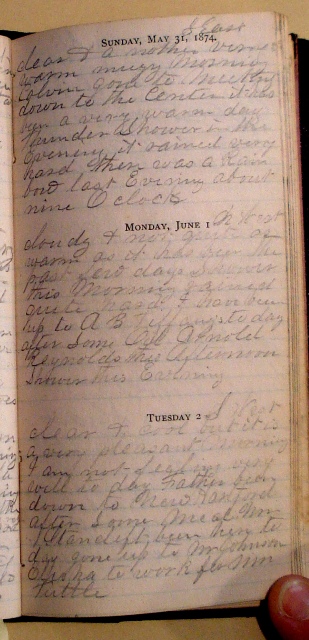 SUNDAY, MAY 31, 1874.
S East
clear & a nother verry
warm muggy Morning
Calvin gone to Meeting
down to the Center it has
ben a very warm day
Thunder Shower in the
Evening it rained very
hard there was a Rain
bow last Evening about
nine O clock
MONDAY, JUNE 1
N West
cloudy & not quite as
warm as it has ben the
past few days Shower
this Morning & rained
quite hard I have been
up to A B Tiffany's to day
after Some
Reynolds this Afternoon
Shower this Evening
TUESDAY 2
S West
clear & cool but it is
a very pleasant morning
I am not feeling very
well to day Father been
down to New
after Some Meal Mr
been here to
day gone up to Mr Johnson
to work for Mr
Tuttle